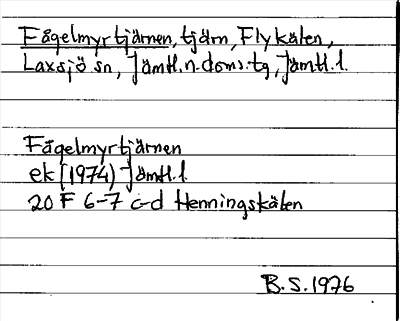 Fågelmyrtjärnen, tjärn, Flykälen,
Laxsjö sn, Jämtl.n.doms.tg, Jämtl.l.
Fågelmyrtjärnen
ek (1974) Jämtl.l.
20 F 6-7 c-d Henningskälen
B.S. 1976